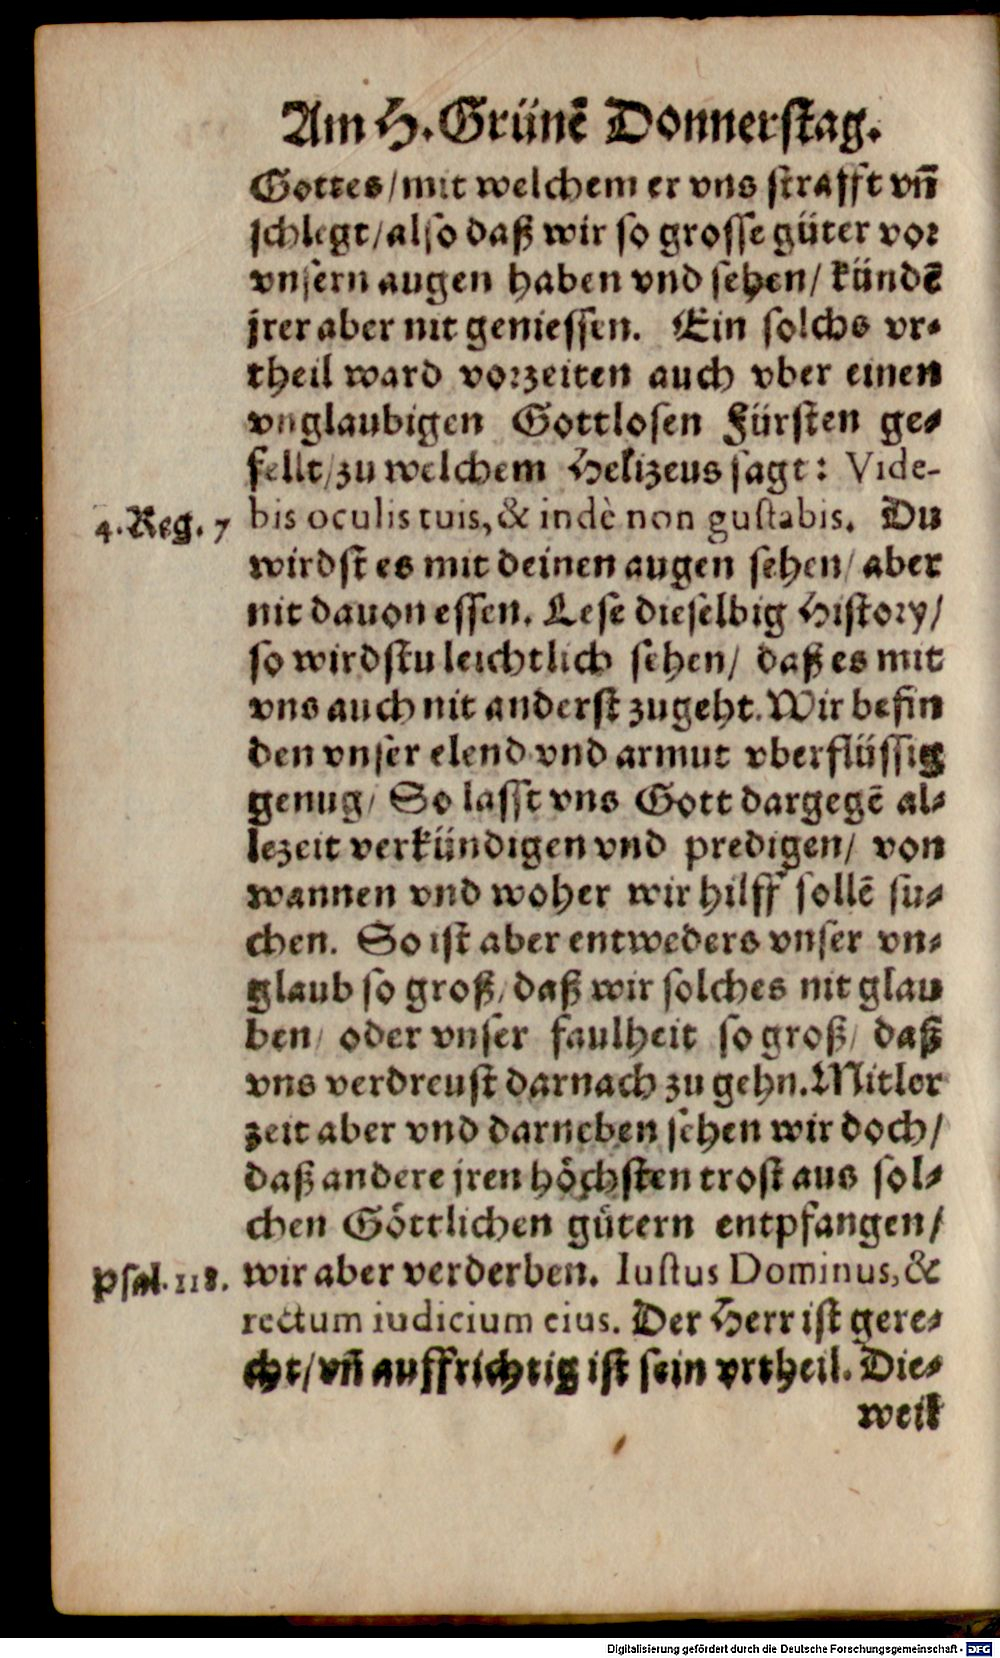 Am H. Grünē Donnerstag.
Gottes/ mit welchem er vns strafft vñ
schlegt/ also daß wir so grosse güter vor
vnsern augen haben vnd sehen/ kündē
jrer aber nit geniessen. Ein solchs vr-
theil ward vorzeiten auch vber einen
vnglaubigen Gottlosen Fürsten ge-
fellt/ zu welchem Helizeus sagt: Vide-
4. Reg. 7 bis oculis tuis, & indè non gustabis. Du
wirdst es mit deinen augen sehen/ aber
nit dauon essen. Lese dieselbig History/
so wirdstu leichtlich sehen/ daß es mit
vns auch nit anderst zugeht. Wir befin
den vnser elend vnd armut vberflüssig
genug/ So lasst vns Gott dargegē al-
lezeit verkündigen vnd predigen/ von
wannen vnd woher wir hilff sollē su-
chen. So ist aber entweders vnser vn-
glaub so groß/ daß wir solches nit glau
ben/ oder vnser faulheit so groß/ daß
vns verdreust darnach zu gehn. Mitler
zeit aber vnd darneben sehen wir doch/
daß andere jren höchsten trost aus sol-
chen Göttlichen gütern entpfangen/
Psal. 118. wir aber verderben. Iustus Dominus, &
rectum iudicium eius. Der Herr ist gere-
cht/ vñ auffrichtig ist sein vrtheil. Die-
weil
Digitalisierung gefördert durch die Deutsche Forschungsgemeinschaft - DFG